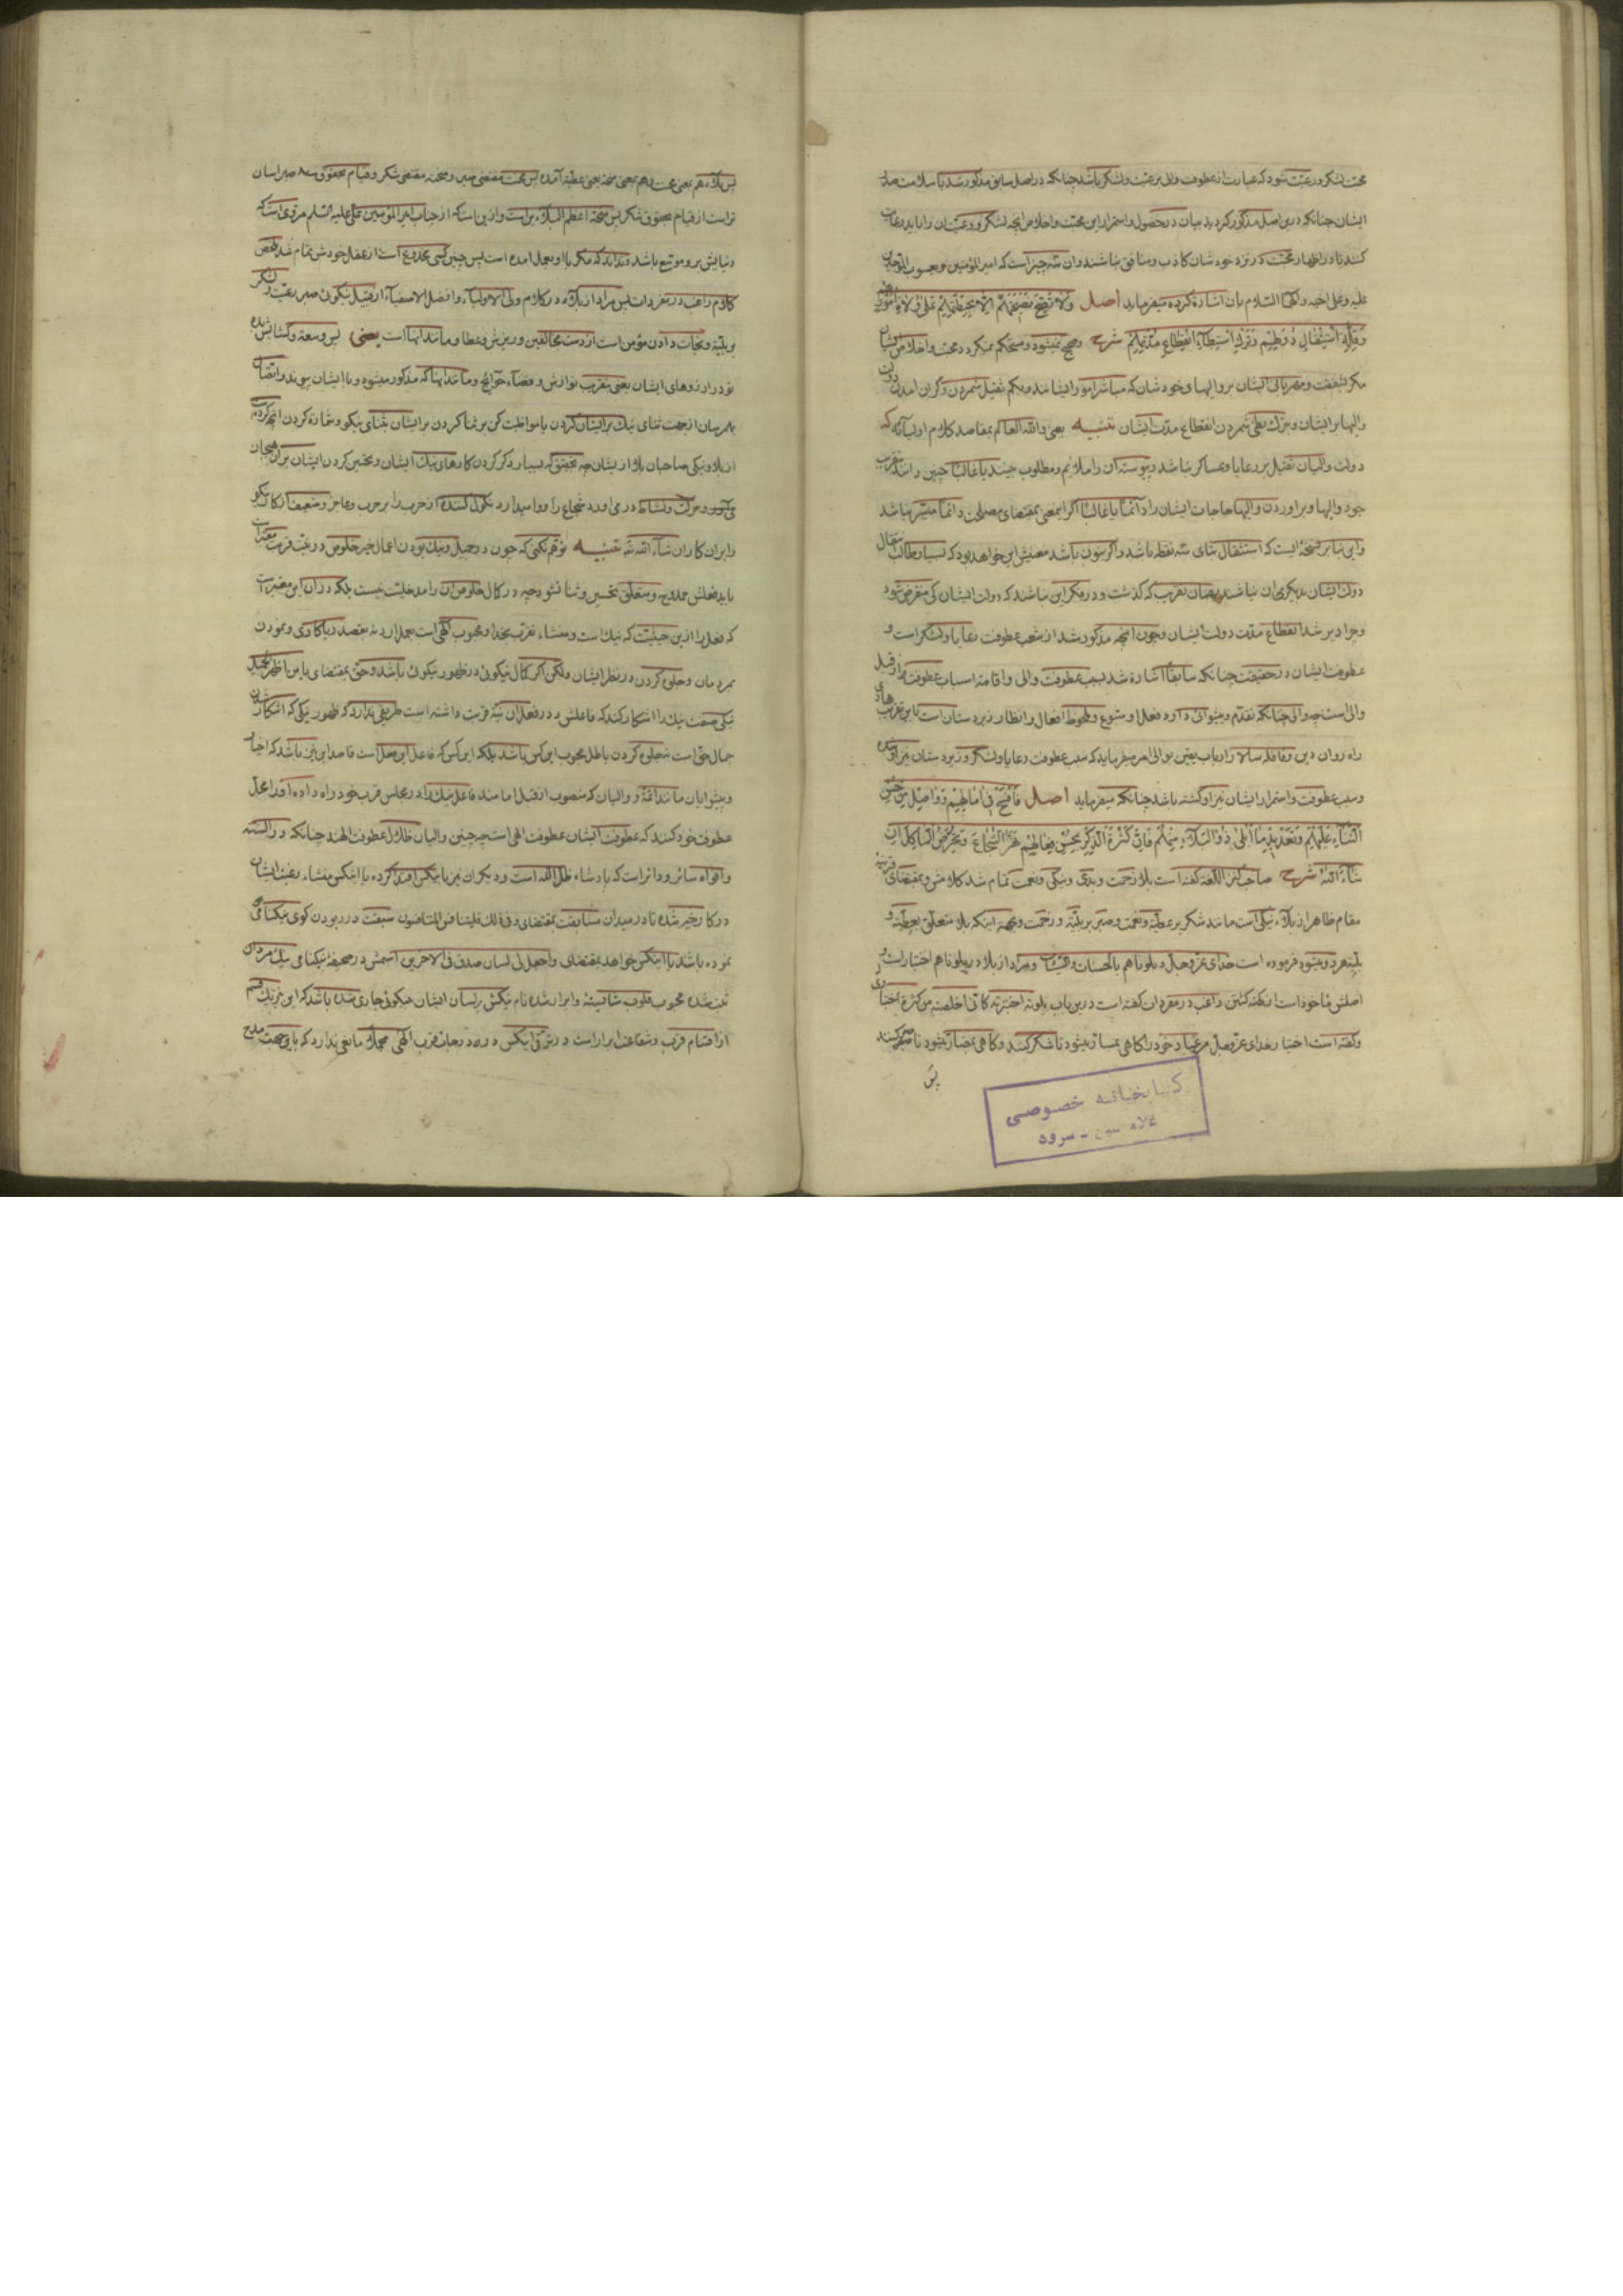 محبت لشکر و رعیت شود که عبارت از عطوفت والی بر رعیت و لشکر باشد چنانکه در اصل سابق مذکور شد با سلامت صدر
ایشان چنانکه درین اصل مذکور کردید بیان در حصول و استمرار این محبت و اخلاص آنچه لشکر و رعیتان را باید رعایت
کنند تا در اظهار محبت که نزد خودشان کاذب و منافق نباشند و ان سه چیز است که امیر المؤمنین و یعسوب الموحدین
علیه و علی اخیه و الهما السلام بان اشاره کرده میفرماید اصل ولا تصح نصیحتهم الا بحیطتهم علی ولاة امورهم
وقلة استثقال دولهم وترک استبطاء انقطاع مدتهم شرح وصحیح نمیشود و مستحکم نمیکردد محبت و اخلاص ایشان
مکر شفقت و مهربانی ایشان بر والیها و خودشان که مباشر امور ایشانند و بکم ثقیل شمردن و کران امدن دولت
والیها بر ایشان و بترک بطی شمردن انقطاع مدت ایشان تنبیه یعنی والله العالم بمقاصد کلام اولیائه که
دولت والیان ثقیل بر رعایا و عساکر نباشد و پیوسته ان را ملایم و مطلوب بینند یا غالبا چنین دانند بتقریب
جود والیها و براوردن والیها حاجات ایشان را دائما یا غالبا اگر اینمعنی بمقتضای مصلحت دائما میسر نباشد
واین بنابر نسخه ایست که استثقال بثای سه نقطه باشد واکر بنون باشد معنیش این خواهد بود که بسیار طالب انتقال
دولت ایشان بدیکری ان نباشند بهمان تقریب که کذشت و در فکر این نباشند که دولت ایشان کی منقرض شود
وچرا دیر شد انقطاع مدت دولت ایشان وچون آنچه مذکور شد از شعب عطوفت رعایا و لشکر است و
عطوفت ایشان در حقیقت چنانکه سابقا اشاره شد بسبب عطوفت والی و اقامه اسباب عطوفت از قبل
والی است چه والی چنانکه تقدم و پیشوائی دارد فعل او متبوع و ملحوظ افعال و انظار زیردستان است باین تقریب هادی
راه روان دین و قافله سالار ارباب یقین بوالی امر میفرماید که سبب عطوفت رعایا و لشکر و زیردستان نیز او شده
وسبب عطوفت و استمرار ایشان نیز او کشته باشد چنانکه میفرماید اصل فافسح فی امالهم وواصل من حسن
الثناء علیهم وتعدید ما ابلی ذووا البلاء منهم فان کثرة الذکر لحسن فعالهم تهز الشجاع وتحرض الناکل ان
شاء الله شرح صاحب کنز اللغه کفته است بلا زحمت و بدی و نیکی و نعمت تمام شد کلامش و بمقتضای قرینه
مقام ظاهرا از بلاء نیکی است مانند شکر بر عطیه و نعمت و صبر بر بلیه و زحمت و بجهة اینکه بلا متعلق بعطیه و
بلیه هر دو میشود فرموده است خدای عز وجل وبلوناهم بالحسنات والسیئات و مراد از بلا در بلوناهم اختبارات و
اصلش ماخوذ است از نکته کثیر راغب در مفردات کفته است درین باب بلوته اختبرته کانی اخلقته من کثرة اختباری
وکفته است اختبار خدای عز وجل مر عباد خود را کاهی بمسار میشود تا شکر کنند و کاهی بمضار میشود تا صبر کنند
پس
کتابخانه خصوصی
سرود
پس بلاء هم بمعنی محنت و هم بمعنی منحه یعنی عطیه آمده پس محنت مقتضی صبر و منحه مقتضی شکر و قیام بحقوق صبر اسان
تر است از قیام بحقوق شکر پس منحه اعظم البلاءین است و ازین است که از جناب امیر المؤمنین علی علیه السلم مرویست که
دنیایش بر و موسع باشد و نداند که مکر باو بعمل امده است پس چنین کسی مخدوع است از عقل خودش تمام شد ملخص
کلام راغب در مفردات پس مراد از بلاء در کلام ولی الاولیاء و افضل الاصفیاء از قبیل نیکوئی صبر رعیت و لشکر
بر بلیه و نجات دادن مؤمن است از دست مخالفین و ریزش و عطا و مانند اینها است یعنی پس وسعت و کشایش ده
تو در ارزوهای ایشان یعنی بتقریب نوازش و قضاء حوائج و مانند اینها که مذکور میشود و با ایشان پیوند و اتصال
بهم رسان از جهت ثنای نیک بر ایشان کردن یا مواظبت کن بر ثنا کردن بر ایشان بثنای نیکو و شماره کردن انچه کرده اند
از بلا و نیکی صاحبان بلا از ایشان چه بتحقیق که بسیار ذکر کردن کارهای نیک ایشان و تحسین کردن ایشان بر ان بهیجان
می آورد و بحرکت و نشاط در می اورد شجاع را و وامیدارد نکول کننده از حرب را بر حرب و عاجز و ضعیف از کار نیکو
را بر ان کار ان شاء الله ته تنبیه توهم نکنی که چون در جمیل و نیک بودن اعمال خیر خلوص در نیت قربت معتبر است
باید فعلش ممدوح و متعلق تحسین و ثنا نشود چه در کمال خلوص ان را مدخلیت نیست بلکه در ان این معتبر است
که فعل را ازین حیثیت که نیک است و منشاء تقرب بخدا و محبوب الهی است بعمل ارد نه بقصد ریاکاری و نمودن
بمردمان و جلوه کردن در نظر ایشان ولکن اکر کمال نیکوئی در ظهور نیکوئی باشد و حق بمقتضای یا من اظهر الجمیل
نیکی صفت نیک را اشکار کند که فاعلش در فعل ان نیة قربت داشته است طریقی ندارد که ظهور نیکی که اشکار شدن
جمال حق است نه جلوه کردن باطل محبوب این کس باشد بلکه این کس که فاعل این عمل است قاصد این نیز باشد که اخیار
و پیشوایان مانند ائمه و والیان که منصوب از قبل امامند فاعل نیک را در مجلس قرب خود راه داده او را محل
عطوفت خود کنند که عطوفت ایشان عطوفت الهی است چه چنین والیان ظلال عطوفت الهند چنانکه در السنه
و افواه سائر و دائر است که پادشاه ظل الله است و دیکران نیز با ینکس اقتدا کرده با اینکس منشاء رغبت ایشان
در کار خیر شده تا در میدان مسابقت بمقتضای وفی ذلک فلیتنافس المتنافسون سبقت در ربودن کوی نیکنامی
نموده باشد یا اینکس خواهد بمقتضای واجعل لی لسان صدق فی الاخرین اسمش در صحیفه نیکنامی نیک مردان
ثبت شده محبوب قلوب شایسته و ابرار شده نام نیکش بر لسان ایشان بنیکوئی جاری شده باشد که این نیز یک قسم
از اقسام قرب و شفاعت ابرار است در ترقی اینکس در درجات قرب الهی مانعی ندارد که باین جهت مدح